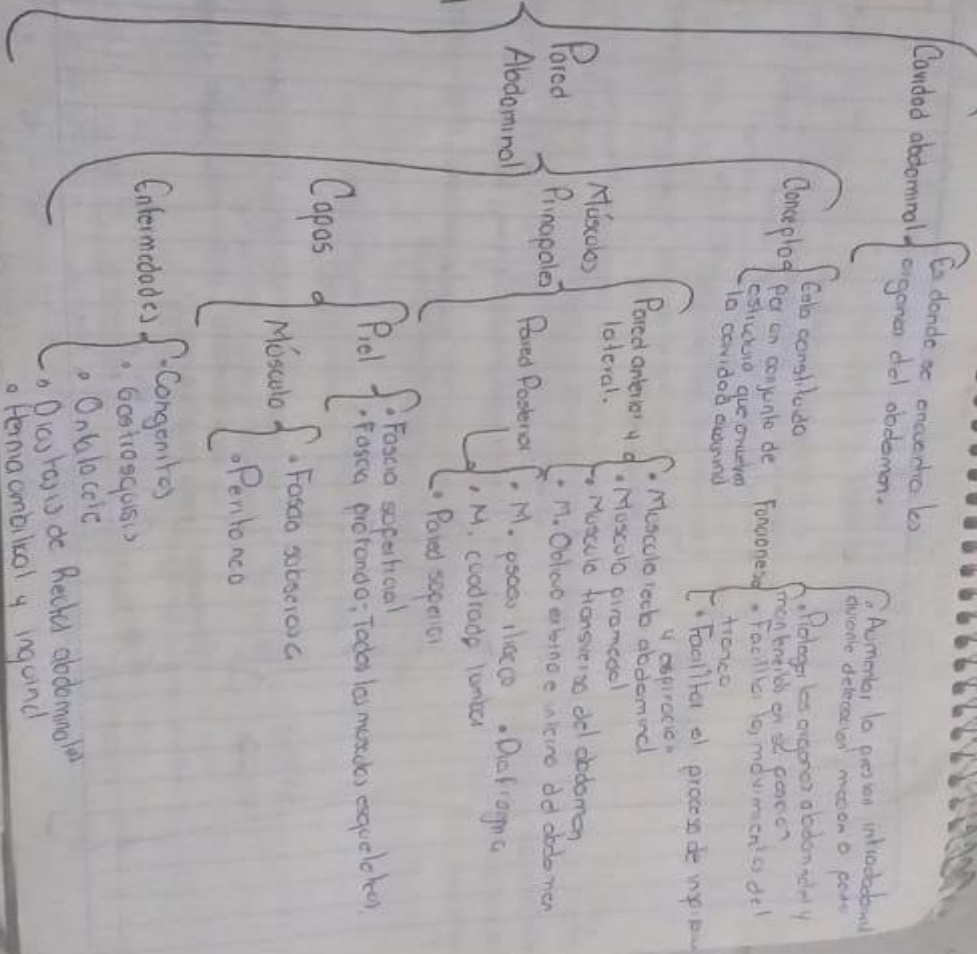 Cavidad abdominal
Es donde se encuentra los
organos del abdomen.
Pared
Abdominal
Concepto
Esta constituida
por un conjunto de
estructura que
la cavidad
Funciones
Aumentar la presion
durante defecacion, miccion o parto
Proteger los organos abdominales y
mantenerlos en su posicion
Facilitar los movimientos del
tronco
Facilitar el proceso de
y espiracion
Músculos
Principales
Pared anterior y
lateral.
Musculo recto abdominal
Musculo piramedal
Musculo transverso del abdomen
M. Oblicuo externo e interno del abdomen
Pared Posterior
M. psoas iliaco
Diafragma
M. cuadrado lumbar
Pared superior
Capas
Piel
Fascia superficial
Fascia profunda; Todos los musculos esqueleticos.
Músculo
Fascia subserosa
Peritoneo
Enfermedades
Congenitas
Gastrosquisis
Onfalocele
Diastasis de Rectos abdominales
Hernia umbilical y inguinal